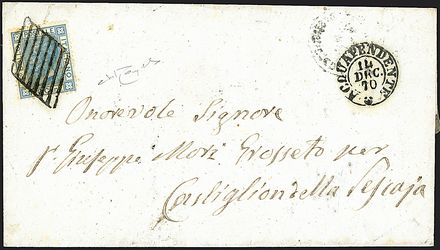 ACQUAPENDENTE
14
DEC.
70
Onorevole Signore
Giuseppe Mori Grosseto per
Castiglion della Pescaja